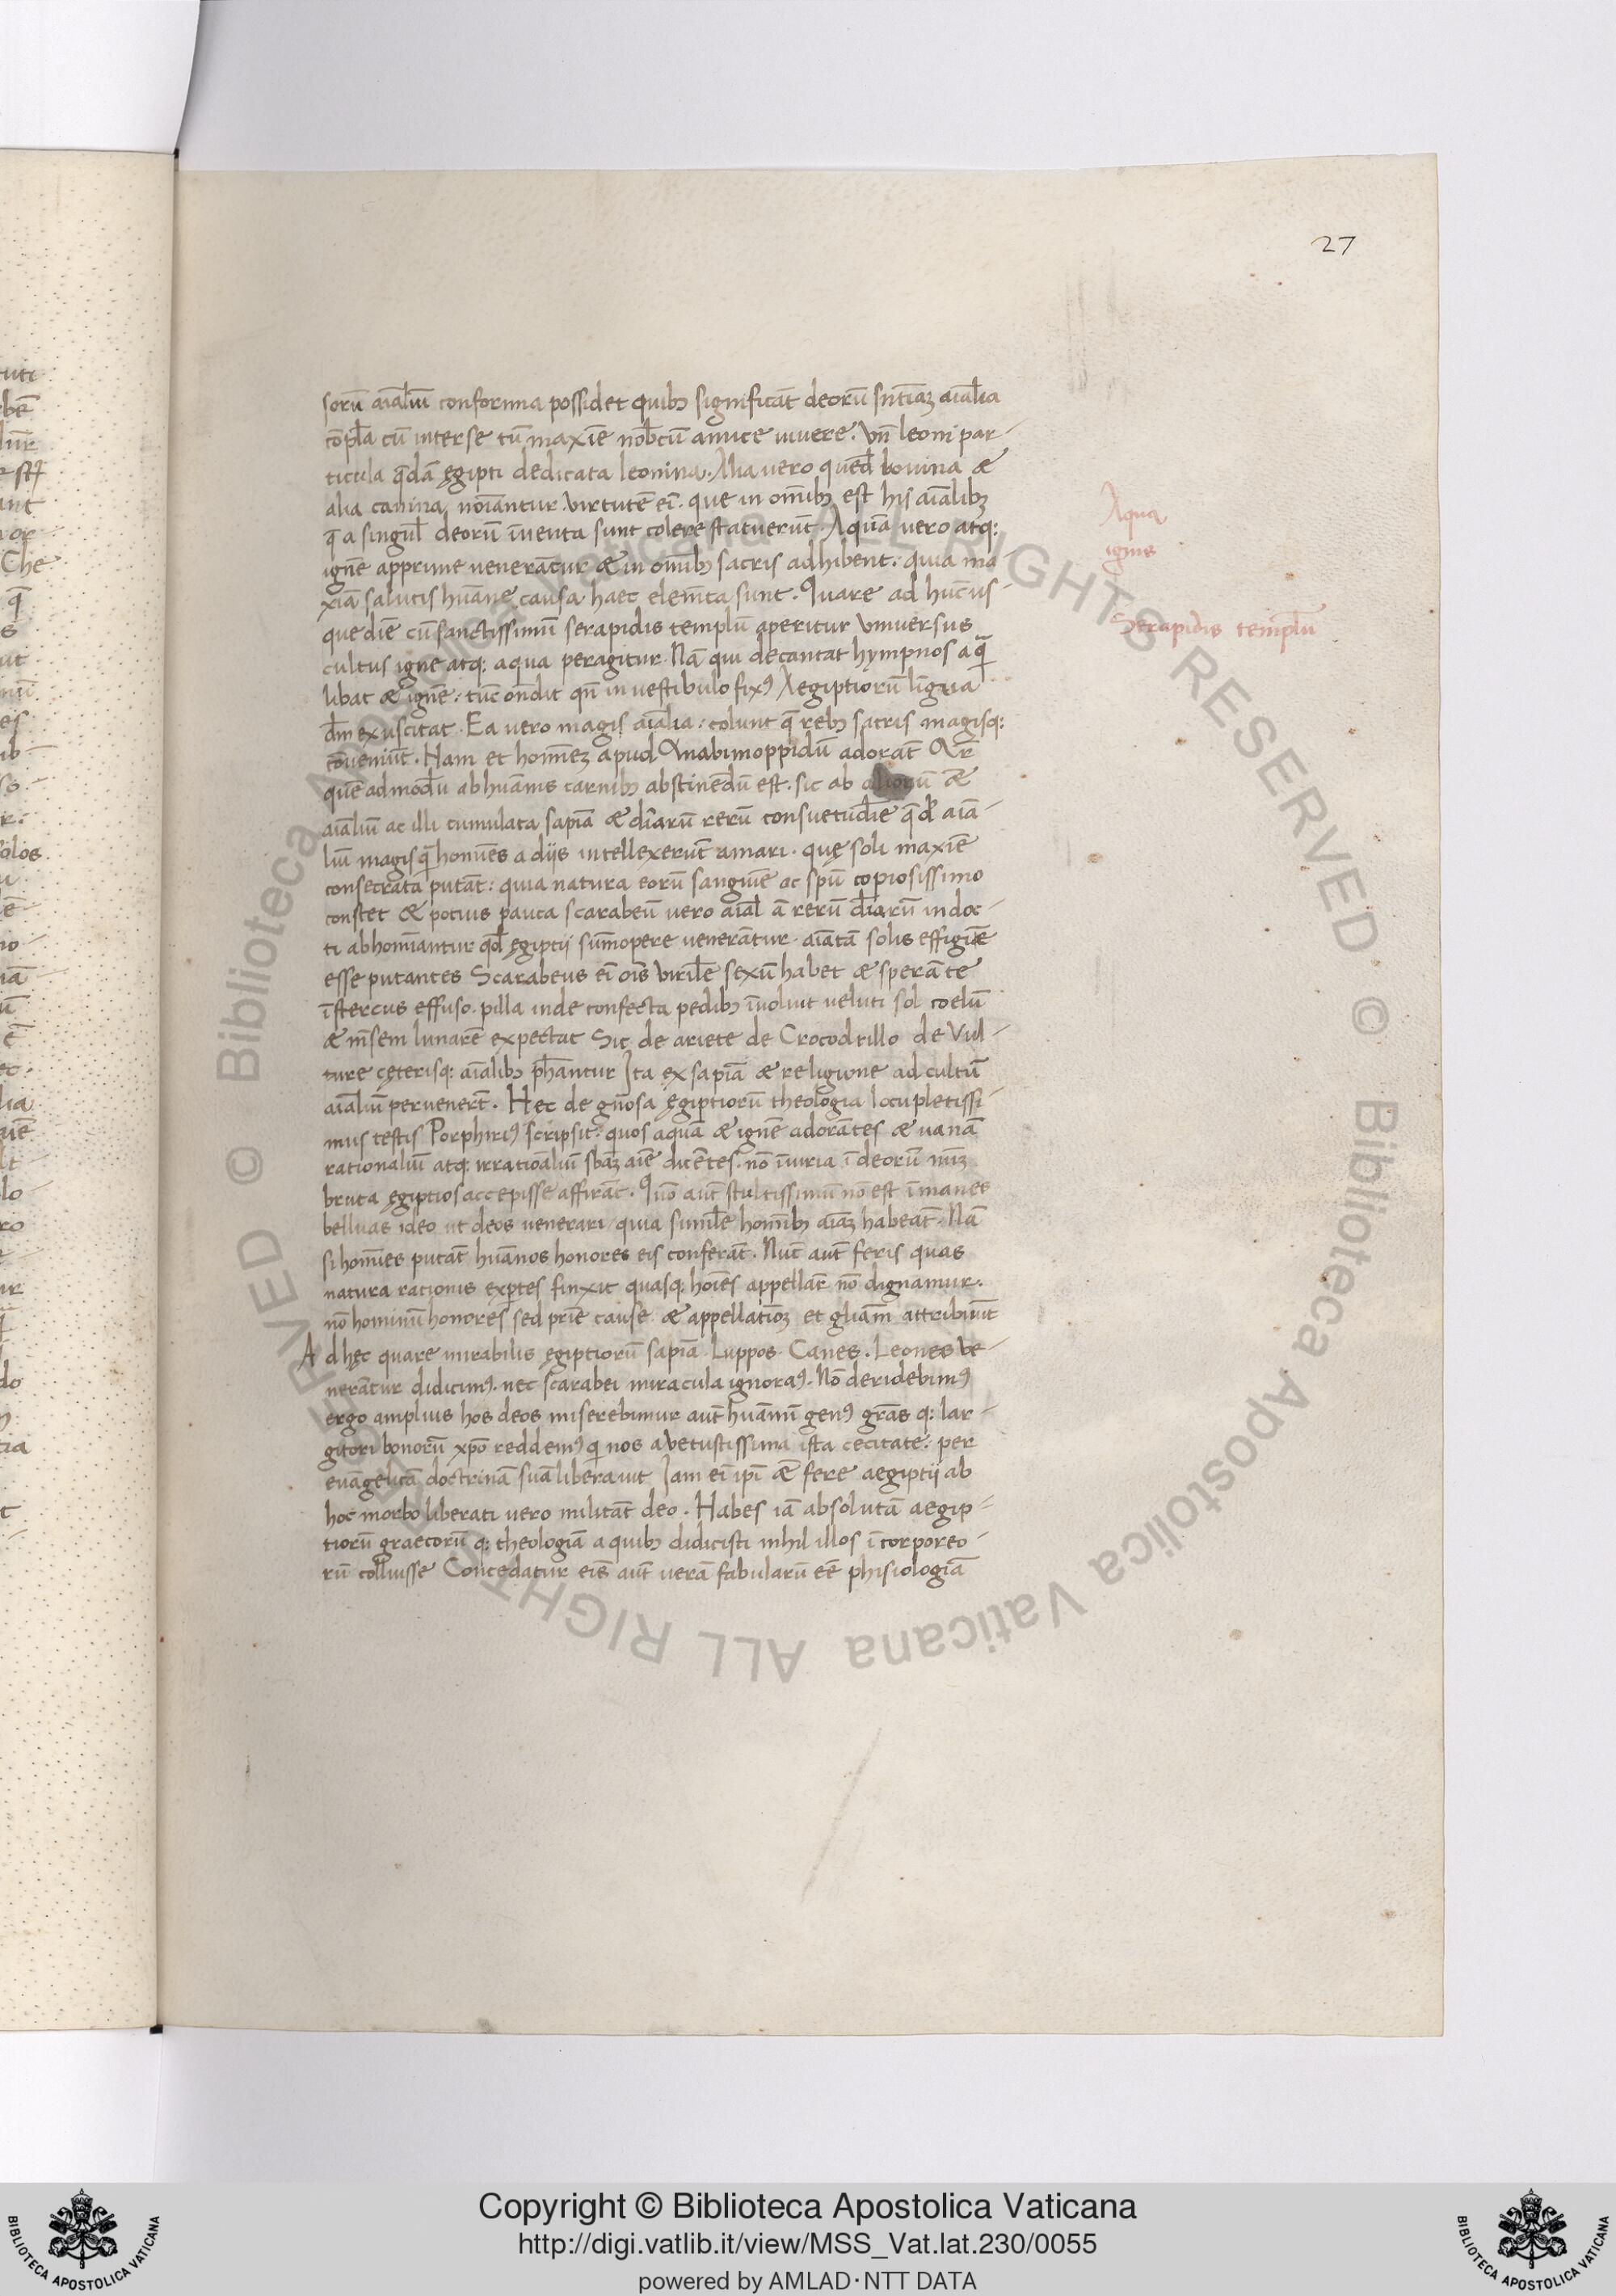 27
sorū aīaliū conforma possidet quibꝫ significāt deorū sn̄tiaꝫ aīalia
cōpl̄a cū inter se tū maxīe nob̄cū amice vivere. Vn̄ leoni par-
ticula q̄dā ęgipti dedicata leonina. Alia vero quēd bovina &
alia canina noīantur virtutē eī. que in om̄ibꝫ est his aīalibꝫ
q̄ a singul̄ deorū īventa sunt colere statuerūt. Aquā vero atq:
ignē apprime venerātur & in om̄ibꝫ sacris adhibent: quia ma
xiā salutis huāne causa haec elem̄ta sunt. Quare ad hūc us-
que diē cū sanctissimū serapidis templū aperitur universus
cultus igne atq: aqua peragitur. Nā qui decantat hympnos aq̄
libat & ignē: tūc on̄dit qn̄ in vestibulo fixꝰ Aegiptiorū lingua
dm̄ exuscitat. Ea vero magis aīalia: colunt q̄ rebꝫ sacris magisq:
cōveniūt. Nam et homīeꝫ apud Anabim oppidū adorāt
quē admodū ab huānis carnibꝫ abstinēdū est. sic ab aliorū &
aīaliū ac illi cumulata sapīa & diīarū rerū consuetudīe q̄d aīa-
liū magis q̄ homīes a diis intellexerūt amari. quę soli maxīe
consecrata putāt: quia natura eorū sanguīe ac spū copiosissimo
constet & potius pauca scarabeū vero aīal ā rerū dīarū indoc-
ti abhomīantur qd̄ ęgiptij sūmopere venerātur. aīatā solis effigiē
esse putantes Scarabeus eī oīs virilē sexū habet & sperāte
ī stercus effuso. pilla inde confecta pedibꝫ īvolvit veluti sol coelū
& mēsem lunarē expectat Sic de ariete de Crocodrillo de Vul-
ture cęterisq: aīalibꝫ ph̄antur Ita ex sapīa & religione ad cultū
aīaliū pervenerūt. Hec de gn̄osa ęgiptiorū theologia locupletissi-
mus testis Porphiriꝰ scripsit: quos aquā & ignē adorātes & vanā
rationaliū atq: irratioāliū sbāꝫ aīe dicētes. nō īiuria ī deorū nūꝫ
bruta ęgiptios accepisse affirāt. Quō aūt stultissimū nō est īmanes
belluas ideo ut deos venerari quia similē homībꝫ aīaꝫ habeāt. Nā
si homīes putāt huānos honores eis conferāt. Nūc aūt feris quas
natura rationis exp̄tes finxit quasq: hoīes appellar̄ nō dignamur.
nō hominū honores sed prīe cause & appellatiōꝫ et gliām attribuūt
Ad hęc quare mirabilis ęgiptiorū sapīa. Luppos. Canes. Leones ve-
nerātur didicimꝰ. nec scarabei miracula ignoraꝰ. Nō deridebimꝰ
ergo amplius hos deos miserebimur aūt huānū genꝰ grās q: lar-
gitori bonorū xp̄o reddemꝰ qi nos a vetustissima ista cecitate: per
euāgelicā doctrinā suā liberavit Iam eī ip̄i & fere aegiptij ab
hoc morbo liberati vero militāt deo. Habes iā absolutā aegip-
tiorū graecorū q: theologiā a quibꝫ didicisti nihil illos īcorporeo-
rū colluisse Concedatur eīs aūt verā fabularū eē phisiologiā
Aqua
ignis
Serapidis templū
Copyright © Biblioteca Apostolica Vaticana
http://digi.vatlib.it/view/MSS_Vat.lat.230/0055
powered by AMLAD·NTT DATA
BIBLIOTECA APOSTOLICA VATICANA
BIBLIOTECA APOSTOLICA VATICANA
© Biblioteca Apostolica Vaticana ALL RIGHTS RESERVED © Biblioteca Apostolica Vaticana ALL RIGHTS RESERVED